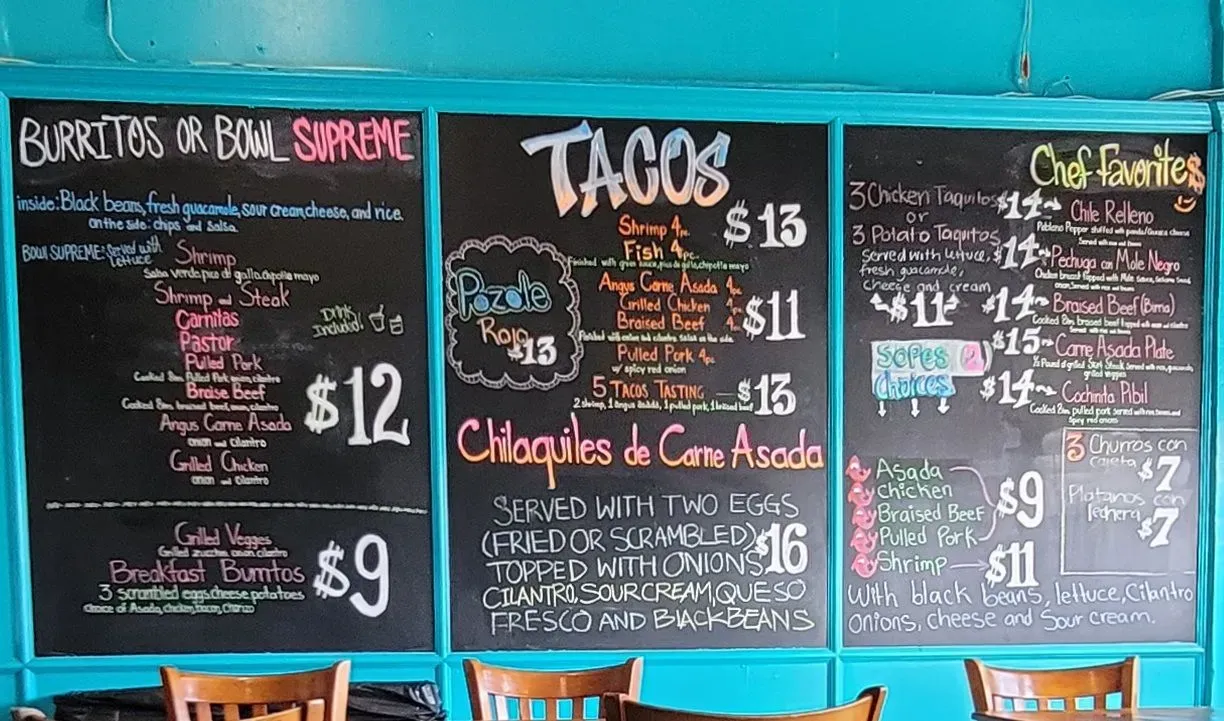 BURRITOS OR BOWL SUPREME
inside: Black beans, fresh guacamole, sour cream, cheese, and rice.
on the side: chips and salsa
BOWL SUPREME: Served with
lettuce
Shrimp
Salsa verde, pico de gallo, chipotle mayo
Shrimp and Steak
Carnitas
Pastor
Drink
Included!
Pulled Pork
Cooked 8hrs. Pulled Pork onion, cilantro
Braise Beef
Cooked 8hrs. braised beef, onion, cilantro
$12
Angus Carne Asada
onion and cilantro
Grilled Chicken
onion and cilantro
Grilled Veggies
Grilled zucchini onion, cilantro
$9
Breakfast Burritos
3 scrambled eggs, cheese, potatoes
choice of Asada, chicken, bacon, Chorizo
TACOS
Shrimp 4pc.
Fish 4pc.
$13
Finished with green sauce, pico de gallo, chipotle mayo
Pozole
Rojo
$13
Angus Carne Asada 4pc
Grilled Chicken 4pc
Braised Beef 4pc
$11
Finished with onion and cilantro, salsa on the side.
Pulled Pork 4pc
w/ spicy red onion
5 TACOS TASTING — $13
2 shrimp, 1 angus asada, 1 pulled pork, 1 braised beef
Chilaquiles de Carne Asada
SERVED WITH TWO EGGS
(FRIED OR SCRAMBLED)
TOPPED WITH ONIONS
$16
CILANTRO, SOUR CREAM, QUESO
FRESCO AND BLACK BEANS
Chef Favorite$
3 Chicken Taquitos
or
3 Potato Taquitos
served with lettuce,
fresh guacamole,
cheese and cream
$11
$14 Chile Relleno
Poblano Pepper stuffed with cheese
Served with rice and beans
$14 Pechuga con Mole Negro
Chicken breast topped with Mole Sauce,
onion, Served with rice and beans
$14 Braised Beef
Cooked 8hrs. braised beef topped with onion and cilantro
Served with rice and beans
$15 Carne Asada Plate
Pound of grilled Skirt Steak Served with rice, guacamole,
grilled veggies
$14 Cochinita Pibil
Cooked 8hrs. pulled pork served with rice, beans and
spicy red onions
SOPES 2
choices
Asada
Chicken
Braised Beef
Pulled Pork
$9
Shrimp $11
With black beans, lettuce, Cilantro
Onions, cheese and Sour cream.
3 Churros con
cajeta
$7
Platanos con
lechera
$7